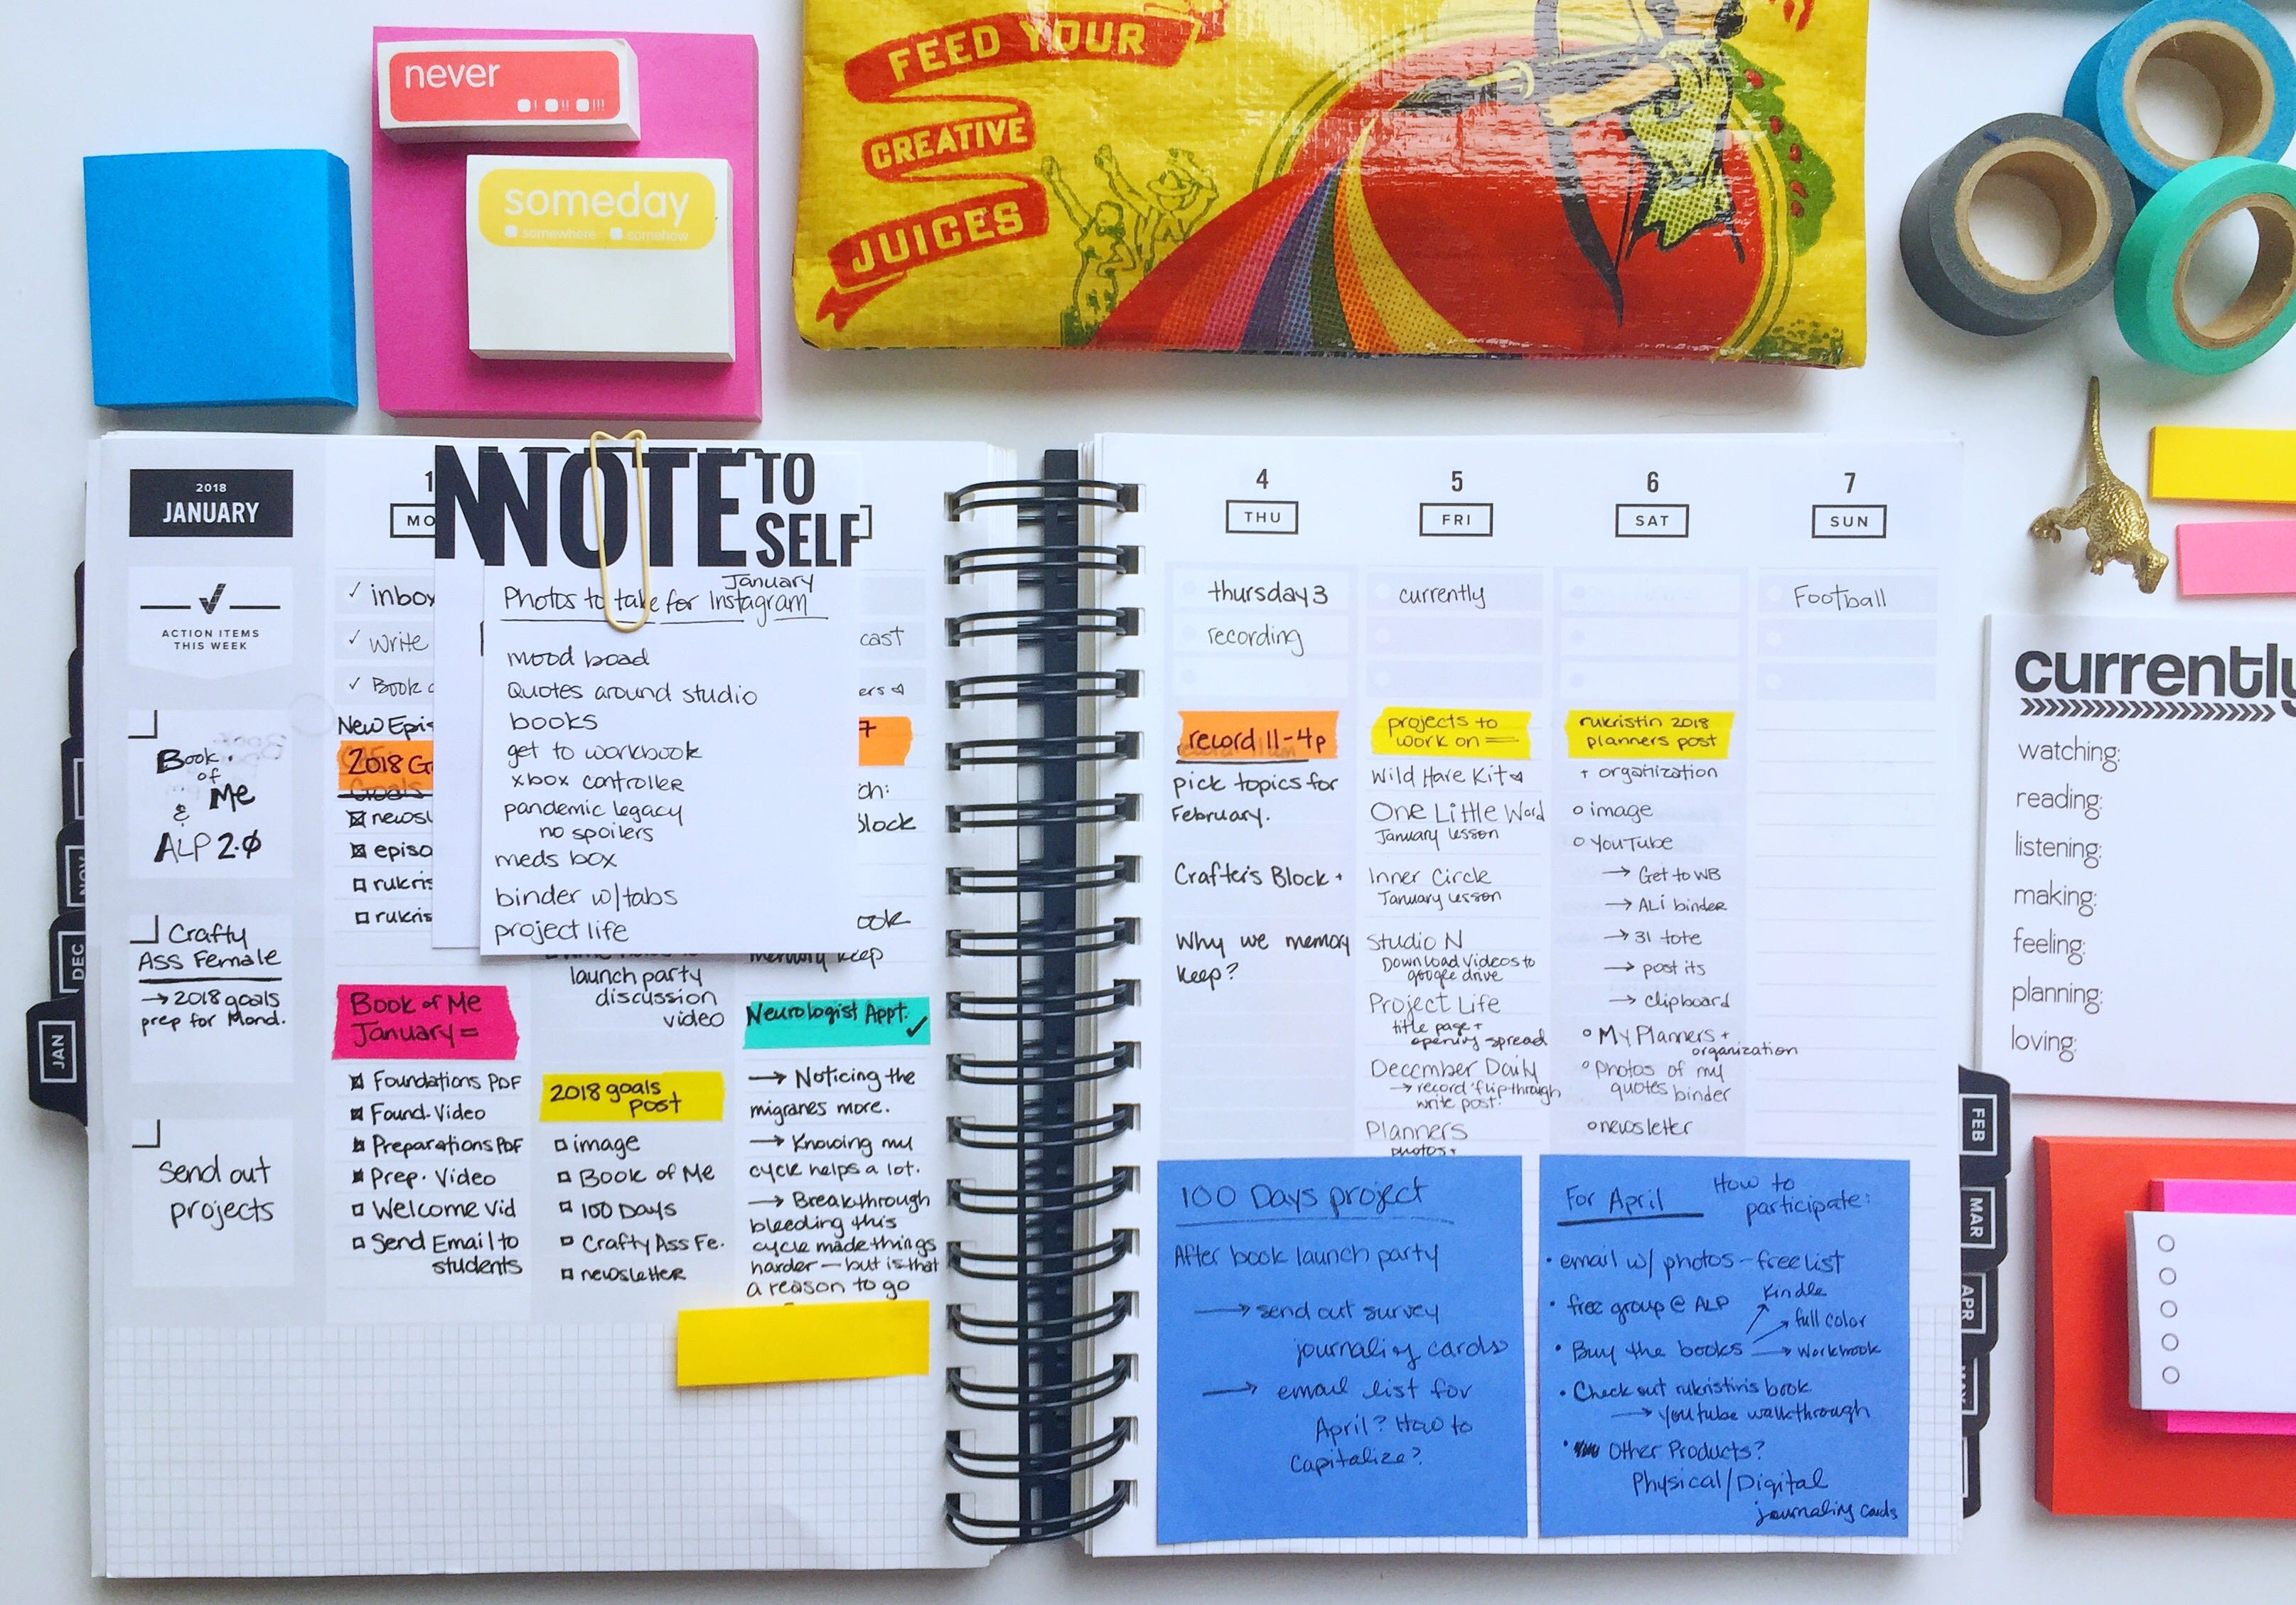 never
! !! !!!
someday
somewhere somehow
FEED YOUR
CREATIVE
JUICES
2018
JANUARY
ACTION ITEMS
THIS WEEK
Book
of
Me
&
ALP 2.0
Crafty
Ass Female
→ 2018 goals
prep for Mond.
Send out
projects
NOV
DEC
JAN
1
MO
✓ inbox
✓ write
✓ Book
New Epis
2018 G
Goals
newsl
episo
rukris
rukris
Book of Me
January =
Foundations PDF
Found. Video
Preparations PDF
Prep. Video
Welcome Vid
Send Email to
students
NNOTE TO
SELF
January
Photos to take for Instagram
mood boad
Quotes around studio
books
get to workbook
xbox controller
pandemic legacy
no spoilers
meds box
binder w/tabs
project life
launch party
discussion
video
2018 goals
post
image
Book of Me
100 Days
Crafty Ass Fe.
newsletter
cast
ers
7
ch:
Block
ook
memory keep
Neurologist Appt.
✓
→ Noticing the
migranes more.
→ Knowing my
cycle helps a lot.
→ Breakthrough
bleeding this
cycle made things
harder — but is that
a reason to go
4
THU
thursday 3
recording
record 11-4p
pick topics for
February.
Crafter's Block +
Why we memory
keep?
5
FRI
currently
projects to
work on =
Wild Hare Kit
One Little Word
January lesson
Inner Circle
January lesson
Studio N
Download videos to
google drive
Project Life
title page +
opening spread
December Daily
→ record flipthrough
write post.
Planners
photos +
6
SAT
rukristin 2018
planners post
+ organization
o image
o YouTube
→ Get to WB
→ ALi binder
→ 31 tote
→ post its
→ clipboard
o My Planners +
organization
o photos of my
quotes binder
o newsletter
7
SUN
Football
100 Days project
After book launch party
→ send out survey
journaling cards
→ email list for
April? How to
Capitalize?
For April How to
participate:
• email w/ photos - free list
• free group @ ALP
Kindle
full color
• Buy the books → workbook
• Check out rukristin's book
→ Youtube walkthrough
• Other Products?
Physical/Digital
journaling cards
FEB
MAR
APR
MAY
currently
watching:
reading:
listening:
making:
feeling:
planning:
loving: